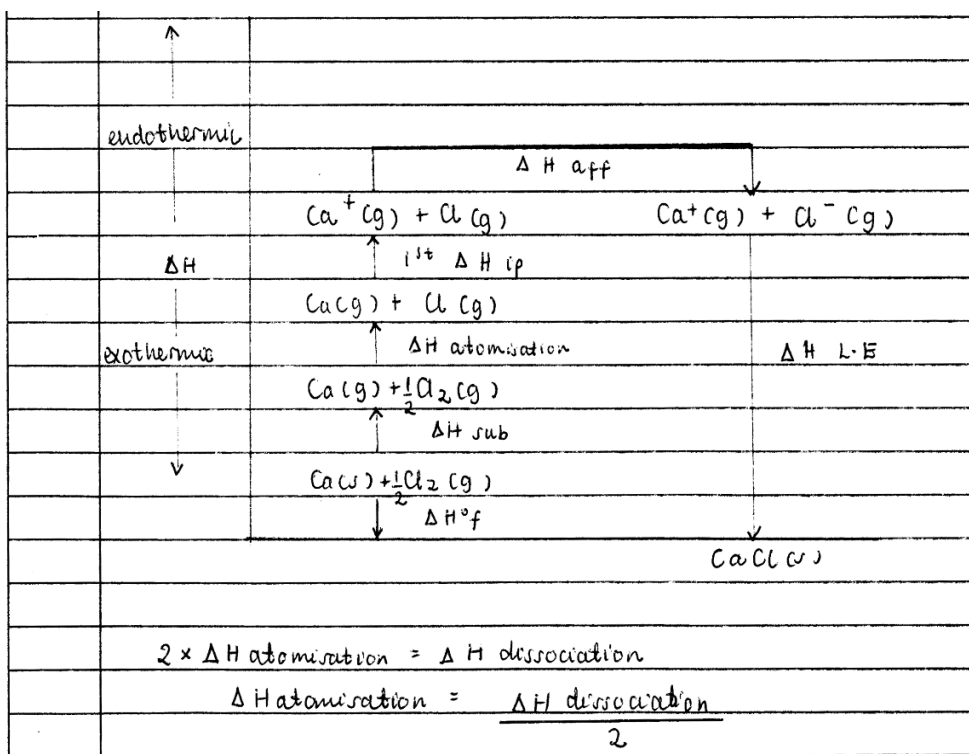 endothermic
Δ H aff
Ca⁺(g) + Cl(g)
Ca⁺(g) + Cl⁻(g)
ΔH
1st Δ H ip
Ca(g) + Cl(g)
exothermic
ΔH atomisation
Δ H L.E
Ca(g) + ½Cl₂(g)
ΔH sub
Ca(s) + ½Cl₂(g)
ΔH°f
CaCl(s)
2 × ΔH atomisation = ΔH dissociation
ΔH atomisation = ΔH dissociation
2